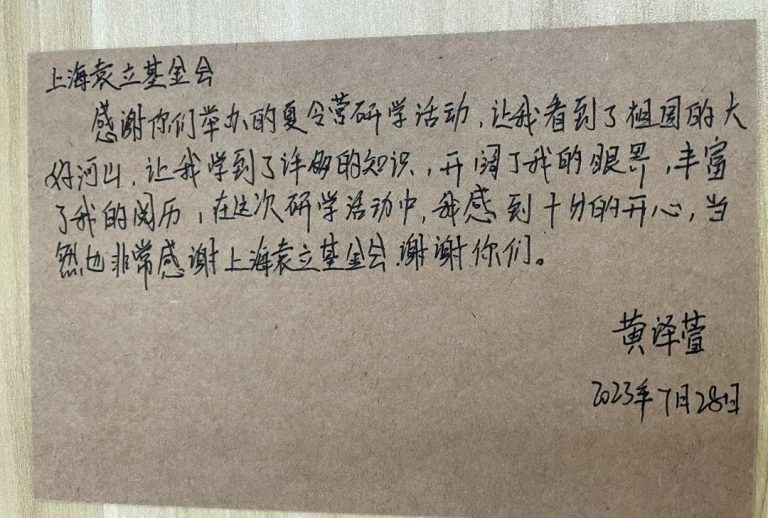 上海袁立基金会
感谢你们举办的夏令营研学活动,让我看到了祖国的大
好河山,让我学到了许多的知识,开阔了我的眼界,丰富
了我的阅历,在这次研学活动中,我感到十分的开心,当
然也非常感谢上海袁立基金会.谢谢你们。
黄泽萱
2023年7月28日